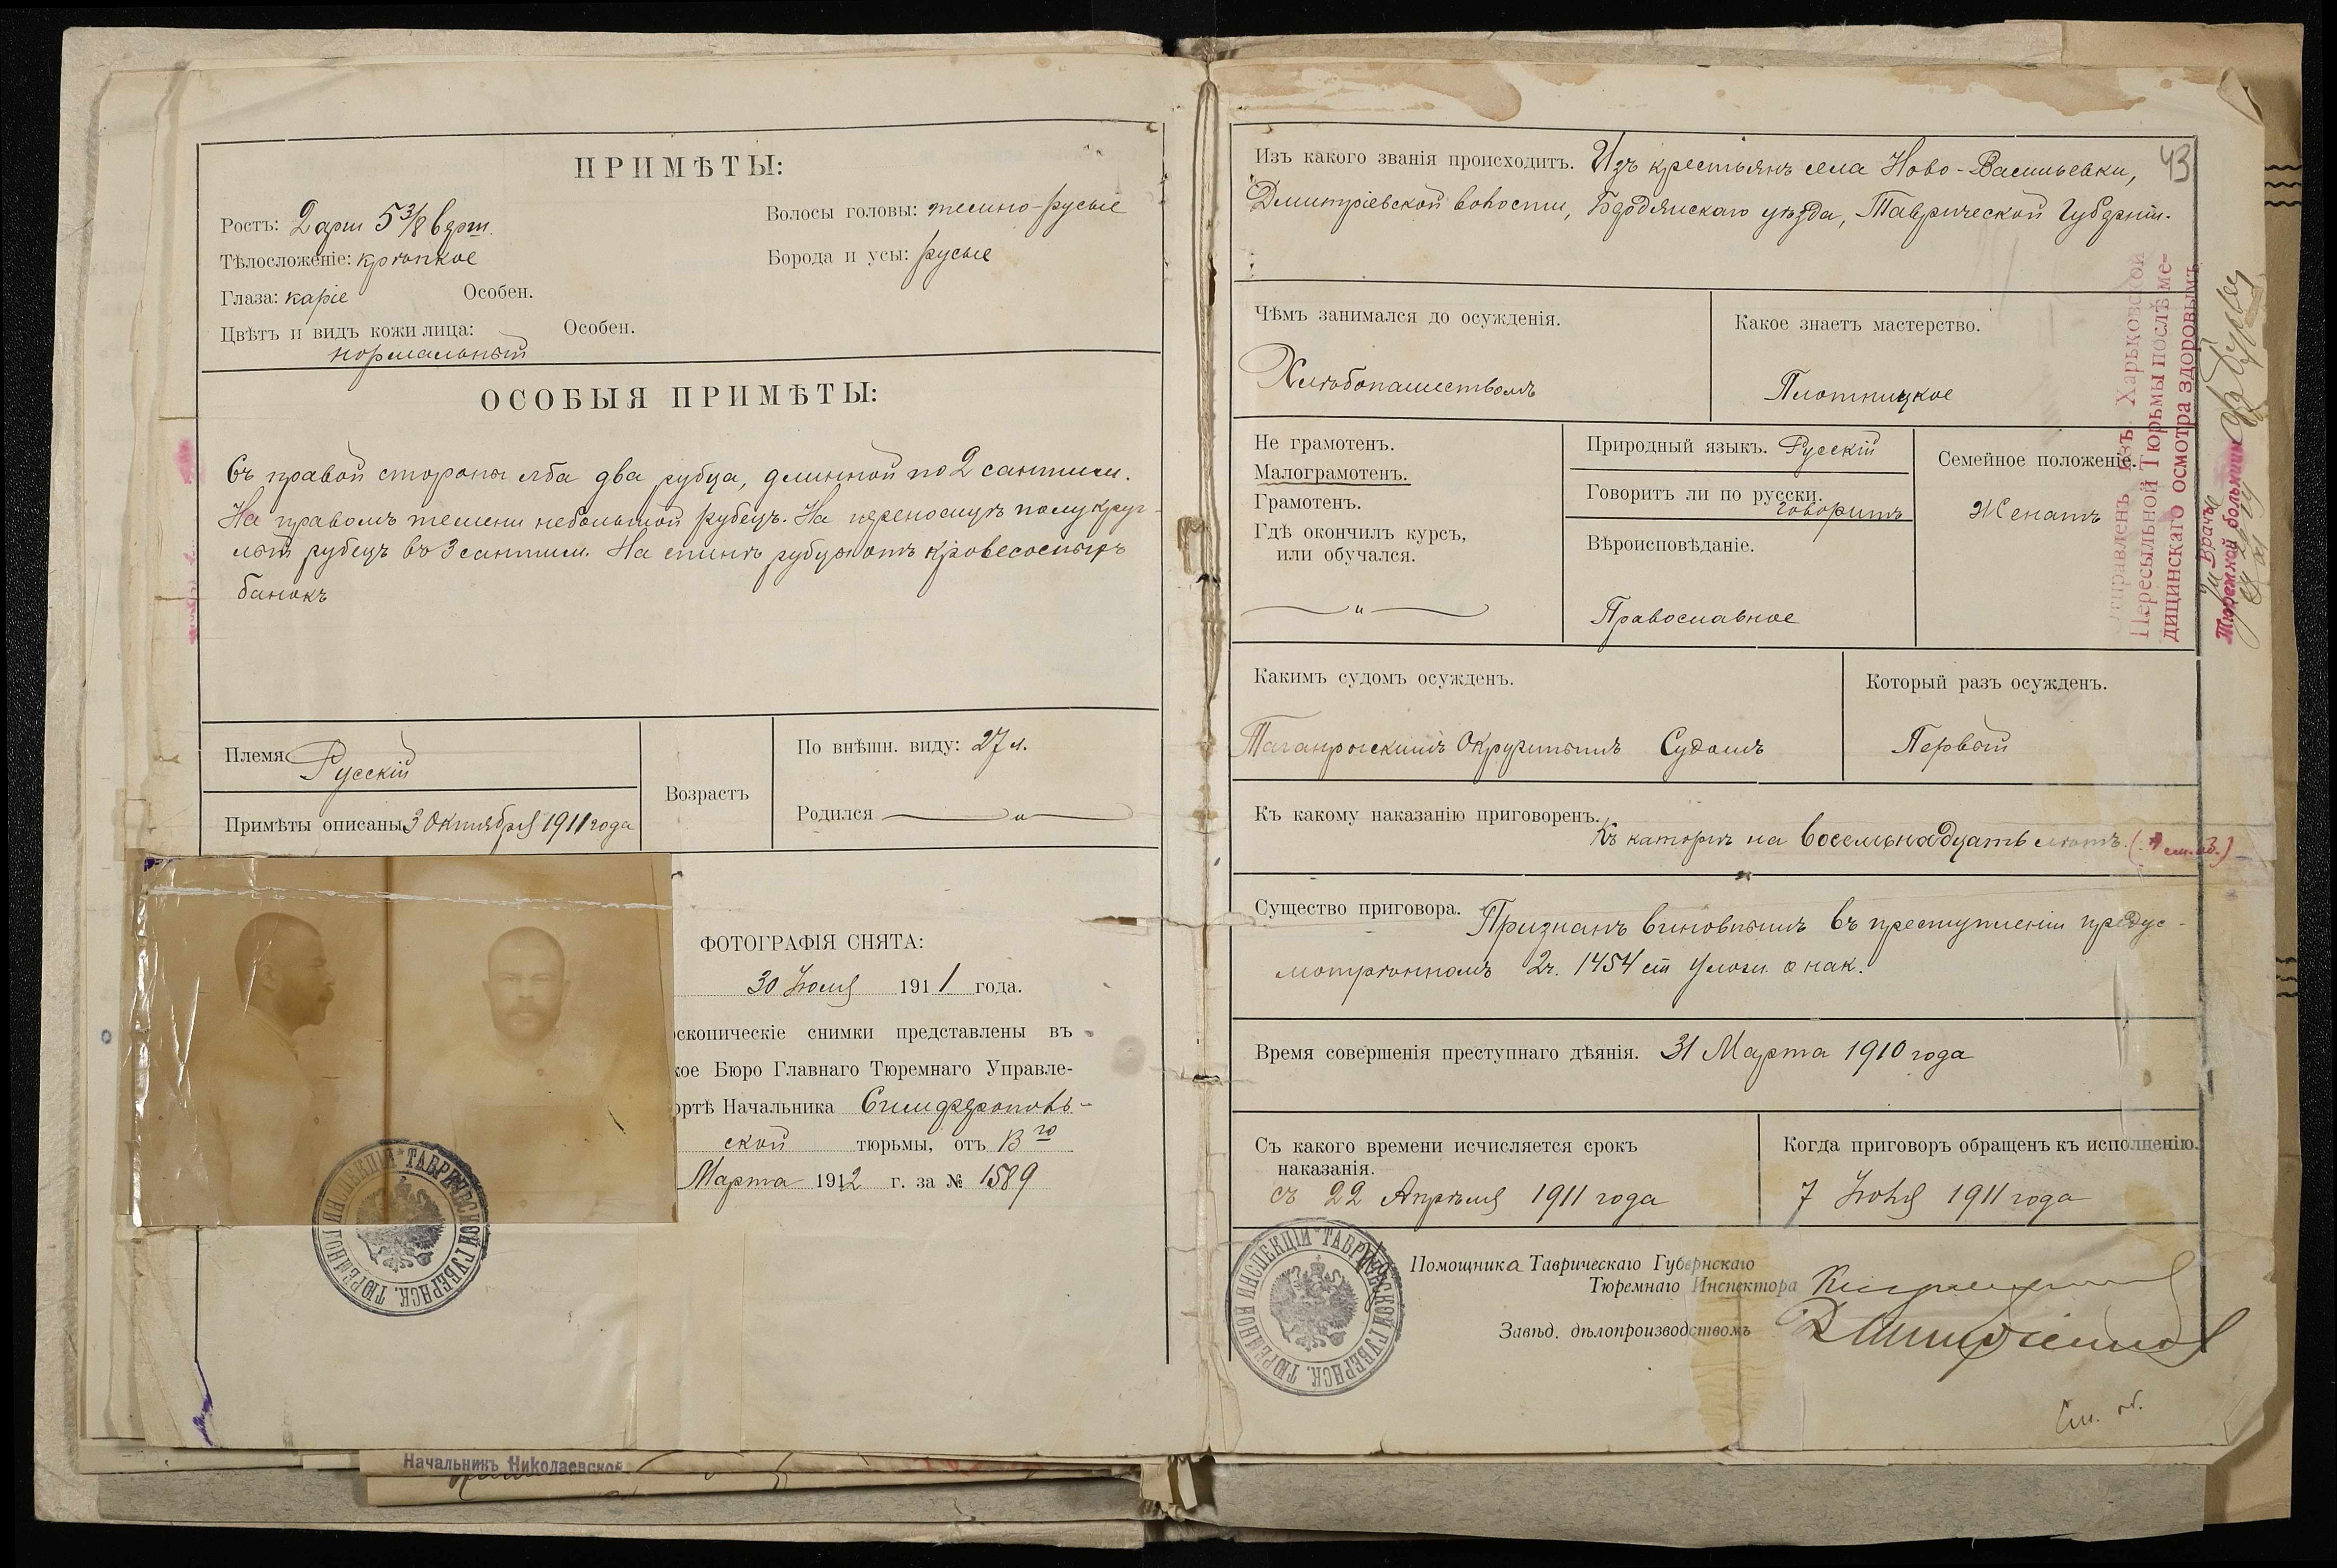 ПРИМѢТЫ:
Ростъ: 2 арш 5 3/8 верт.
Волосы головы: темно-русые
Тѣлосложеніе: крѣпкое
Борода и усы: русые
Глаза: каріе Особен.
Цвѣтъ и видъ кожи лица: Особен.
нормальный
ОСОБЫЯ ПРИМѢТЫ:
Съ правой стороны лба два рубца, длинной по 2 сантим.
На правомъ темени небольшой рубецъ. На переносицѣ полукруг-
лый рубецъ въ 3 сантим. На спинѣ рубцы отъ кровесосныхъ
банокъ
Племя Русскій
Возрастъ
По внѣшн. виду: 27 л.
Родился — " —
Примѣты описаны 3 Октября 1911 года
ФОТОГРАФІЯ СНЯТА:
30 Іюля 1911 года.
оскопическіе снимки представлены въ
кое Бюро Главнаго Тюремнаго Управле-
ортѣ Начальника Симферополь-
ской тюрьмы, отъ 13 го
Марта 1912 г. за № 1589
ТЮРЕМНОЙ ИНСПЕКЦІИ ТАВРИЧЕСКОЙ ГУБЕРНСК.
Начальникъ Николаевской
43
Изъ какого званія происходитъ. Изъ крестьянъ села Ново-Васильевки,
Дмитріевской волости, Бердянскаго уѣзда, Таврической Губерніи.
Чѣмъ занимался до осужденія.
Хлѣбопашествомъ
Какое знаетъ мастерство.
Плотницкое
Не грамотенъ.
Малограмотенъ.
Грамотенъ.
Гдѣ окончилъ курсъ,
или обучался.
— " —
Природный языкъ. Русскій
Говоритъ ли по русски.
говоритъ
Вѣроисповѣданіе.
Православное
Семейное положеніе.
Женатъ
Отправленъ изъ Харьковской
Пересыльной Тюрьмы послѣ ме-
дицинскаго осмотра здоровымъ
Врачъ
Тюремной больницы
Какимъ судомъ осужденъ.
Таганрогскимъ Окружнымъ Судомъ
Который разъ осужденъ.
Первый
Къ какому наказанію приговоренъ.
Къ каторгѣ на восемьнадцать лѣтъ. (см. об.)
Существо приговора. Признанъ виновнымъ въ преступленіи предус-
мотрѣнномъ 2 ч. 1454 ст Улож. о нак.
Время совершенія преступнаго дѣянія. 31 Марта 1910 года
Съ какого времени исчисляется срокъ
наказанія.
съ 22 Апрѣля 1911 года
Когда приговоръ обращенъ къ исполненію.
7 Іюня 1911 года
ТЮРЕМНОЙ ИНСПЕКЦІИ ТАВРИЧЕСКОЙ ГУБЕРНСК.
Помощника Таврическаго Губернскаго
Тюремнаго Инспектора
Завѣд. дѣлопроизводствомъ
См. об.